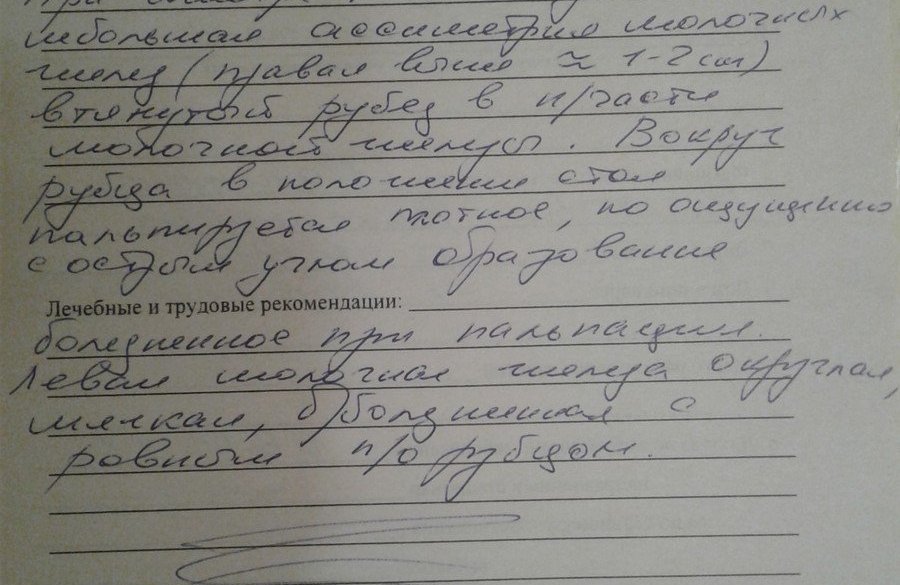 При
небольшая ассиметрия молочных
желез (правая выше ≈ 1-2 см)
втянутый рубец в н/части
молочной железы. Вокруг
рубца в положении стоя
пальпируется плотное, по ощущению
с острым углом образование
Лечебные и трудовые рекомендации:
болезненное при пальпации.
Левая молочная железа округлая,
мягкая, б/болезненная с
ровным п/о рубцом.